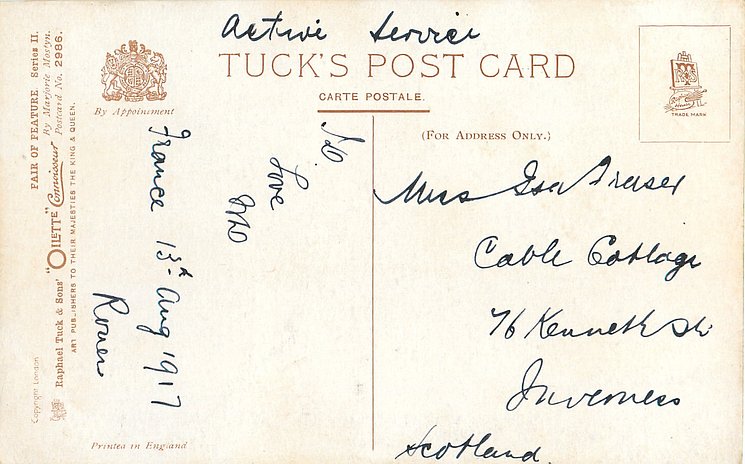 Active Service
TUCK'S POST CARD
CARTE POSTALE.
(FOR ADDRESS ONLY.)
TRADE MARK
By Appointment
FAIR OF FEATURE. Series II.
By Marjorie Mostyn.
Postcard No. 2986.
Raphael Tuck & Sons' "OILETTE" Connoisseur
ART PUBLISHERS TO THEIR MAJESTIES THE KING & QUEEN.
Copyright London
Printed in England
France 13th Aug 1917
Rouen
Love
Miss Isa Fraser
Cable Cottage
76 Kenneth St
Inverness
Scotland.